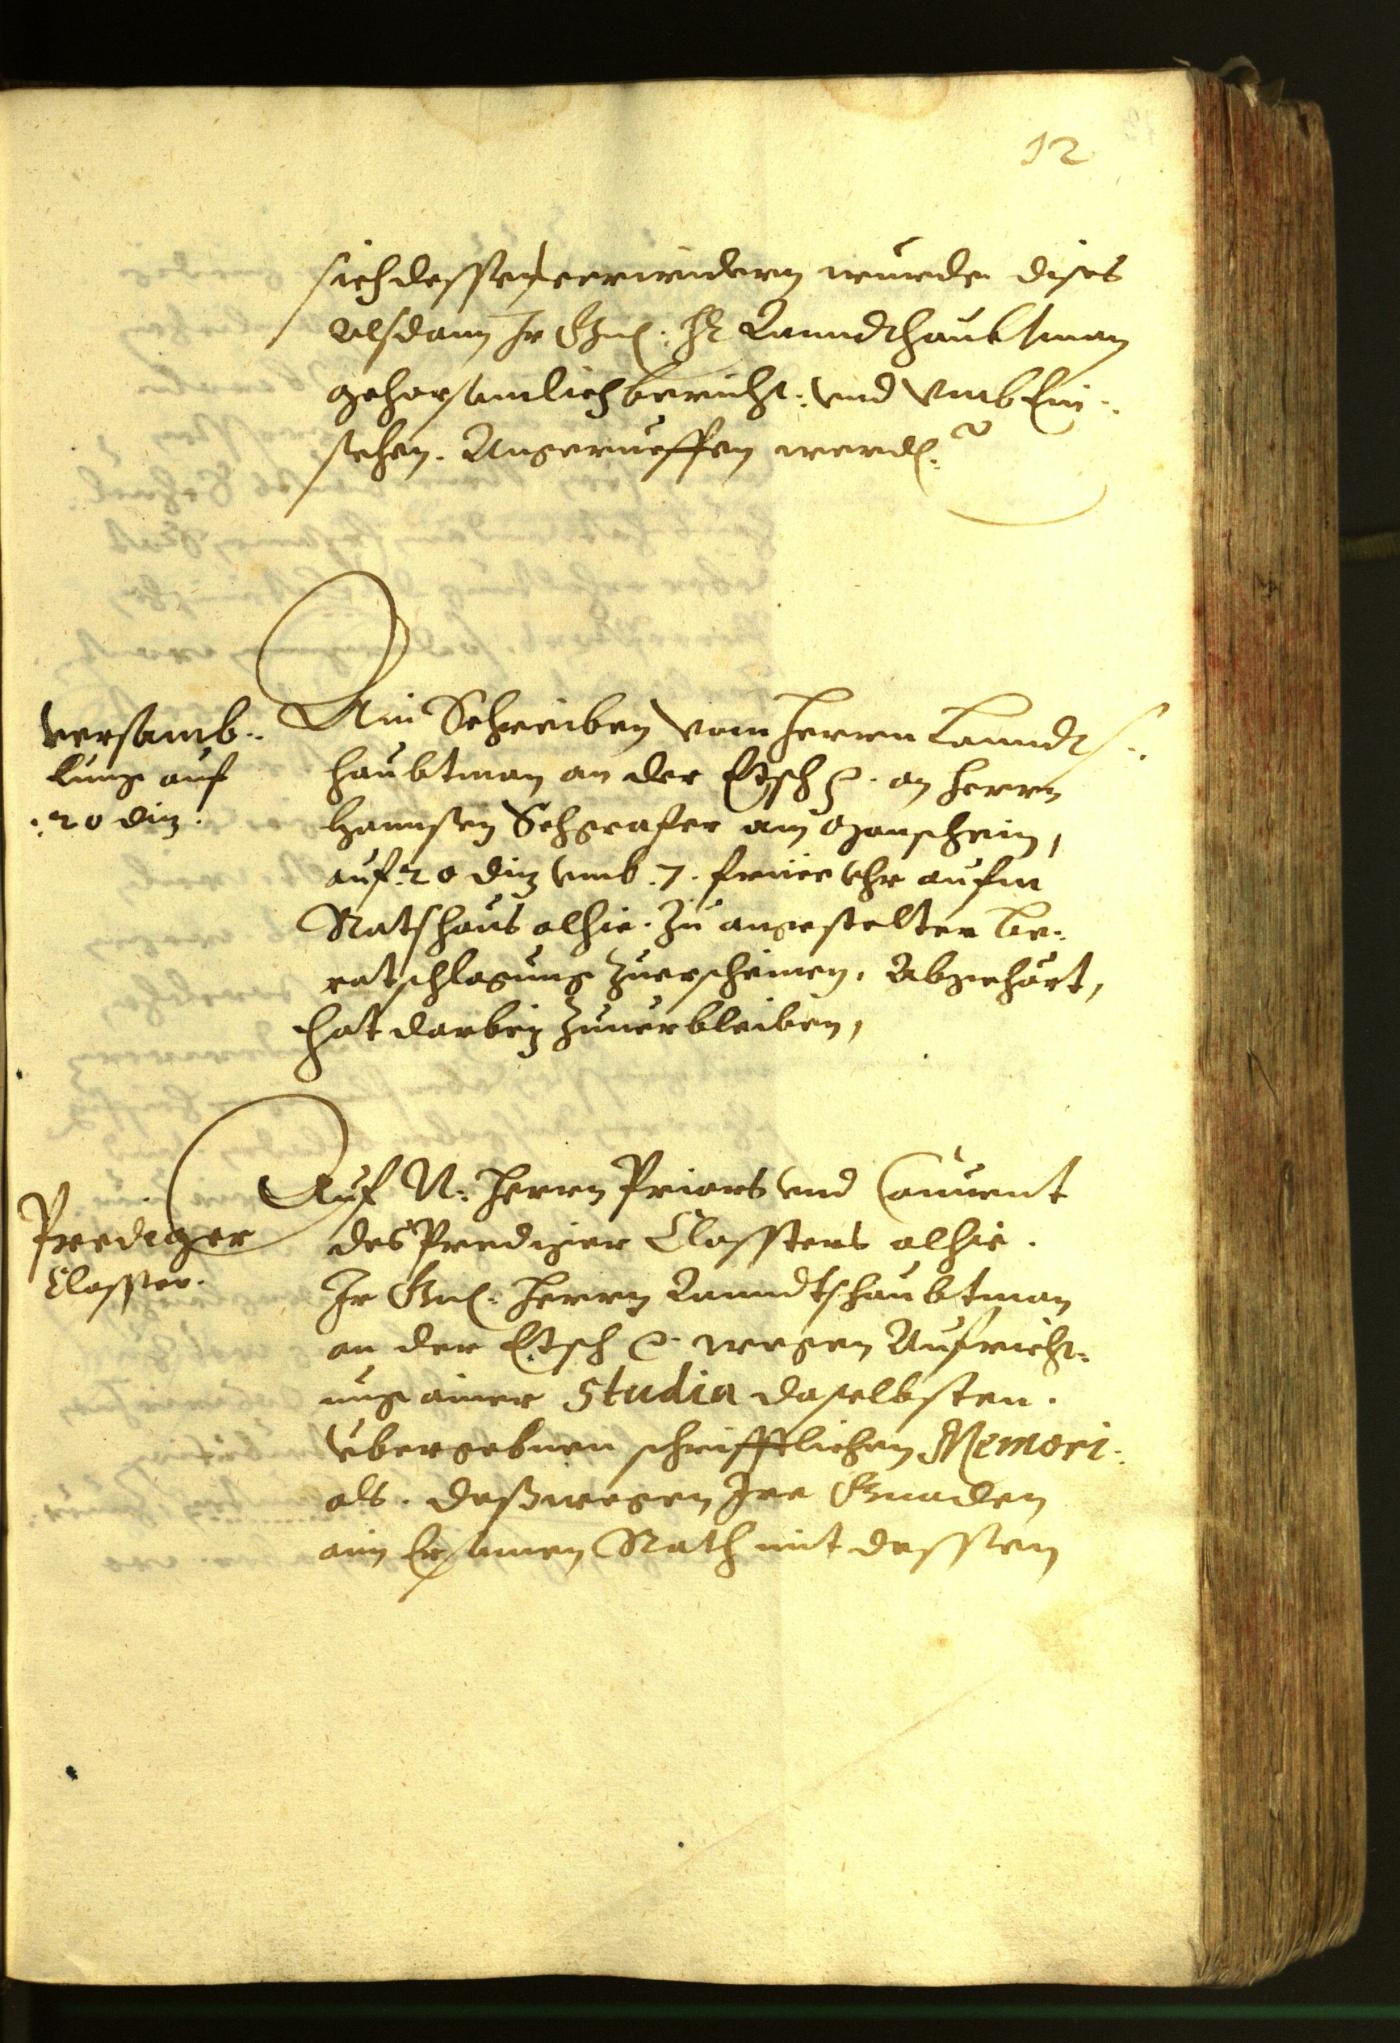 12
sich dessen verwidern wurde dises
Alsdann Ir Gnd: Hr Lanndthaubtman
gehorsamlich bericht: und umb Ein-
sehen. Angerueffen werd:
Versamb-
lung auf
20 diz.
Ain Schreiben vom Herrn Lanndts-
haubtman an der Etsch &. an Herrn
Hannsen Schgrafer am Ganschein,
auf 20 diz umb .7. früee Uhr aufm
Rathshaus alhie. Zu angestelter be-
ratschlagung zuerscheinen, Abgehört,
hat darbey zuuerbleiben,
Prediger
Closster.
Auf N: Herrn Priors und Conuent
des Prediger Clossters alhie.
Ir Gnd. Herrn Lanndtshaubtman
an der Etsch &. wegen Aufricht-
ung ainer Studia daselbsten.
Ubergebnen schrifftlichen Memori-
als. deßwegen Ire Gnaden
ain Ersamen Rath mit dessen